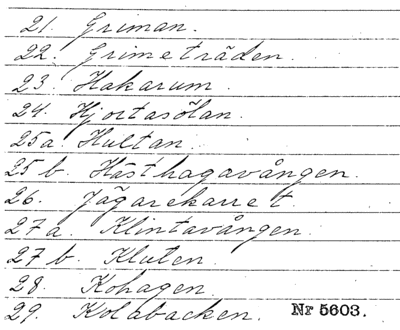 21. Griman.
22. Grimeträden.
23. Hakarum.
24. Hjortasölan.
25a. Hultan.
25b. Hästhagavången.
26. Jägarekarret
27a. Klintavången.
27b. Kluten.
28. Kohagen
29. Kolabacken. Nr 5603.